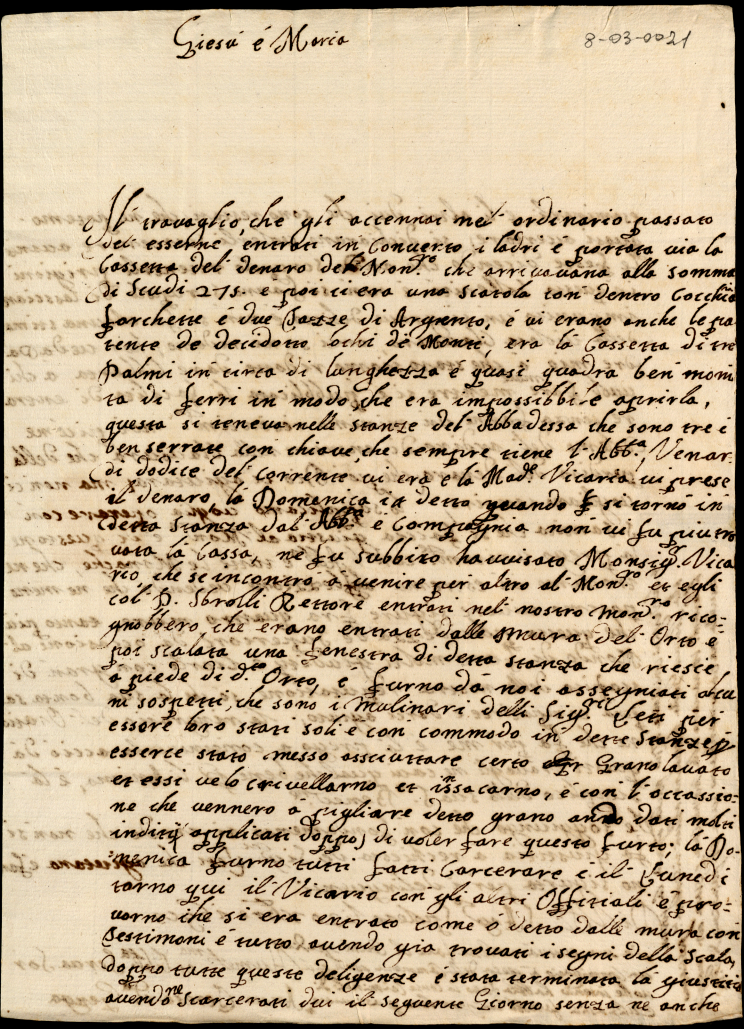 Giesù é Maria
8-03-0021
Il travaglio, che gli accennai nel ordinario passato
del esserne entrati in Convento i ladri é portata via la
Cassetta del denaro del Non.ro che arrivavana alla somma
di Scudi 275. e poi ci era una scatola con dentro Cocchia
farchette é due Tazze di Argento, é vi erano anche le pa
tente de decidotto lochi de Monti, era la Cassetta di tre
Palmi in circa di lunghezza é quasi quadra ben moni
ta di ferri in modo, che era impossibbile aprirla,
questa si teneva nelle stanze del Abbadessa che sono tre i
ben serrate con chiave, che sempre tiene l'Abb.a, Vener
di dodice del corrente vi era é la Mad.e Vicaria vi prese
il denaro, la Domenica detto quando si tornò in
detta stanza dal Abb.a e Compagnia non vi fu piu tro
vata la Cassa, ne fu subbito havvisato Monsig.r Vica
rio, che se incontrò á venire per altro al Mon.ro et egli
col P. Sbrolli Rettore entrati nel nostro Mon.ro rico-
gnobbero, che erano entrati dalle mura del Orto é
poi scalata una fenestra di detta stanza che riesce
a piede di d.o Orto, é furno da noi assegniati alcu
ni sospetti, che sono i Mulinari delli Sig.ri Leti per
essore loro stati soli é con commodo in dette stanze p
esserce stato messo assciuttare certo Grano lavato
et essi ve lo crivellarno et inssacarno, é con l'occassio-
ne che vennero á pigliare detto grano anno dati molti
inditij applicati doppo, di voler fare questo furto; la Do-
menica furno tutti fatti Carcerare é il Lunedi
torno qui il Vicario con gli altri Offitiali é pro-
vorno che si era entrato come ó detto dalle mura con
Testimoni é tutto avendo gia trovati i segni della Scala,
doppo tutte queste deligenze é stata terminata la giustitia
avendo ne Scarcerati dui il seguente Giorno senza ne anche